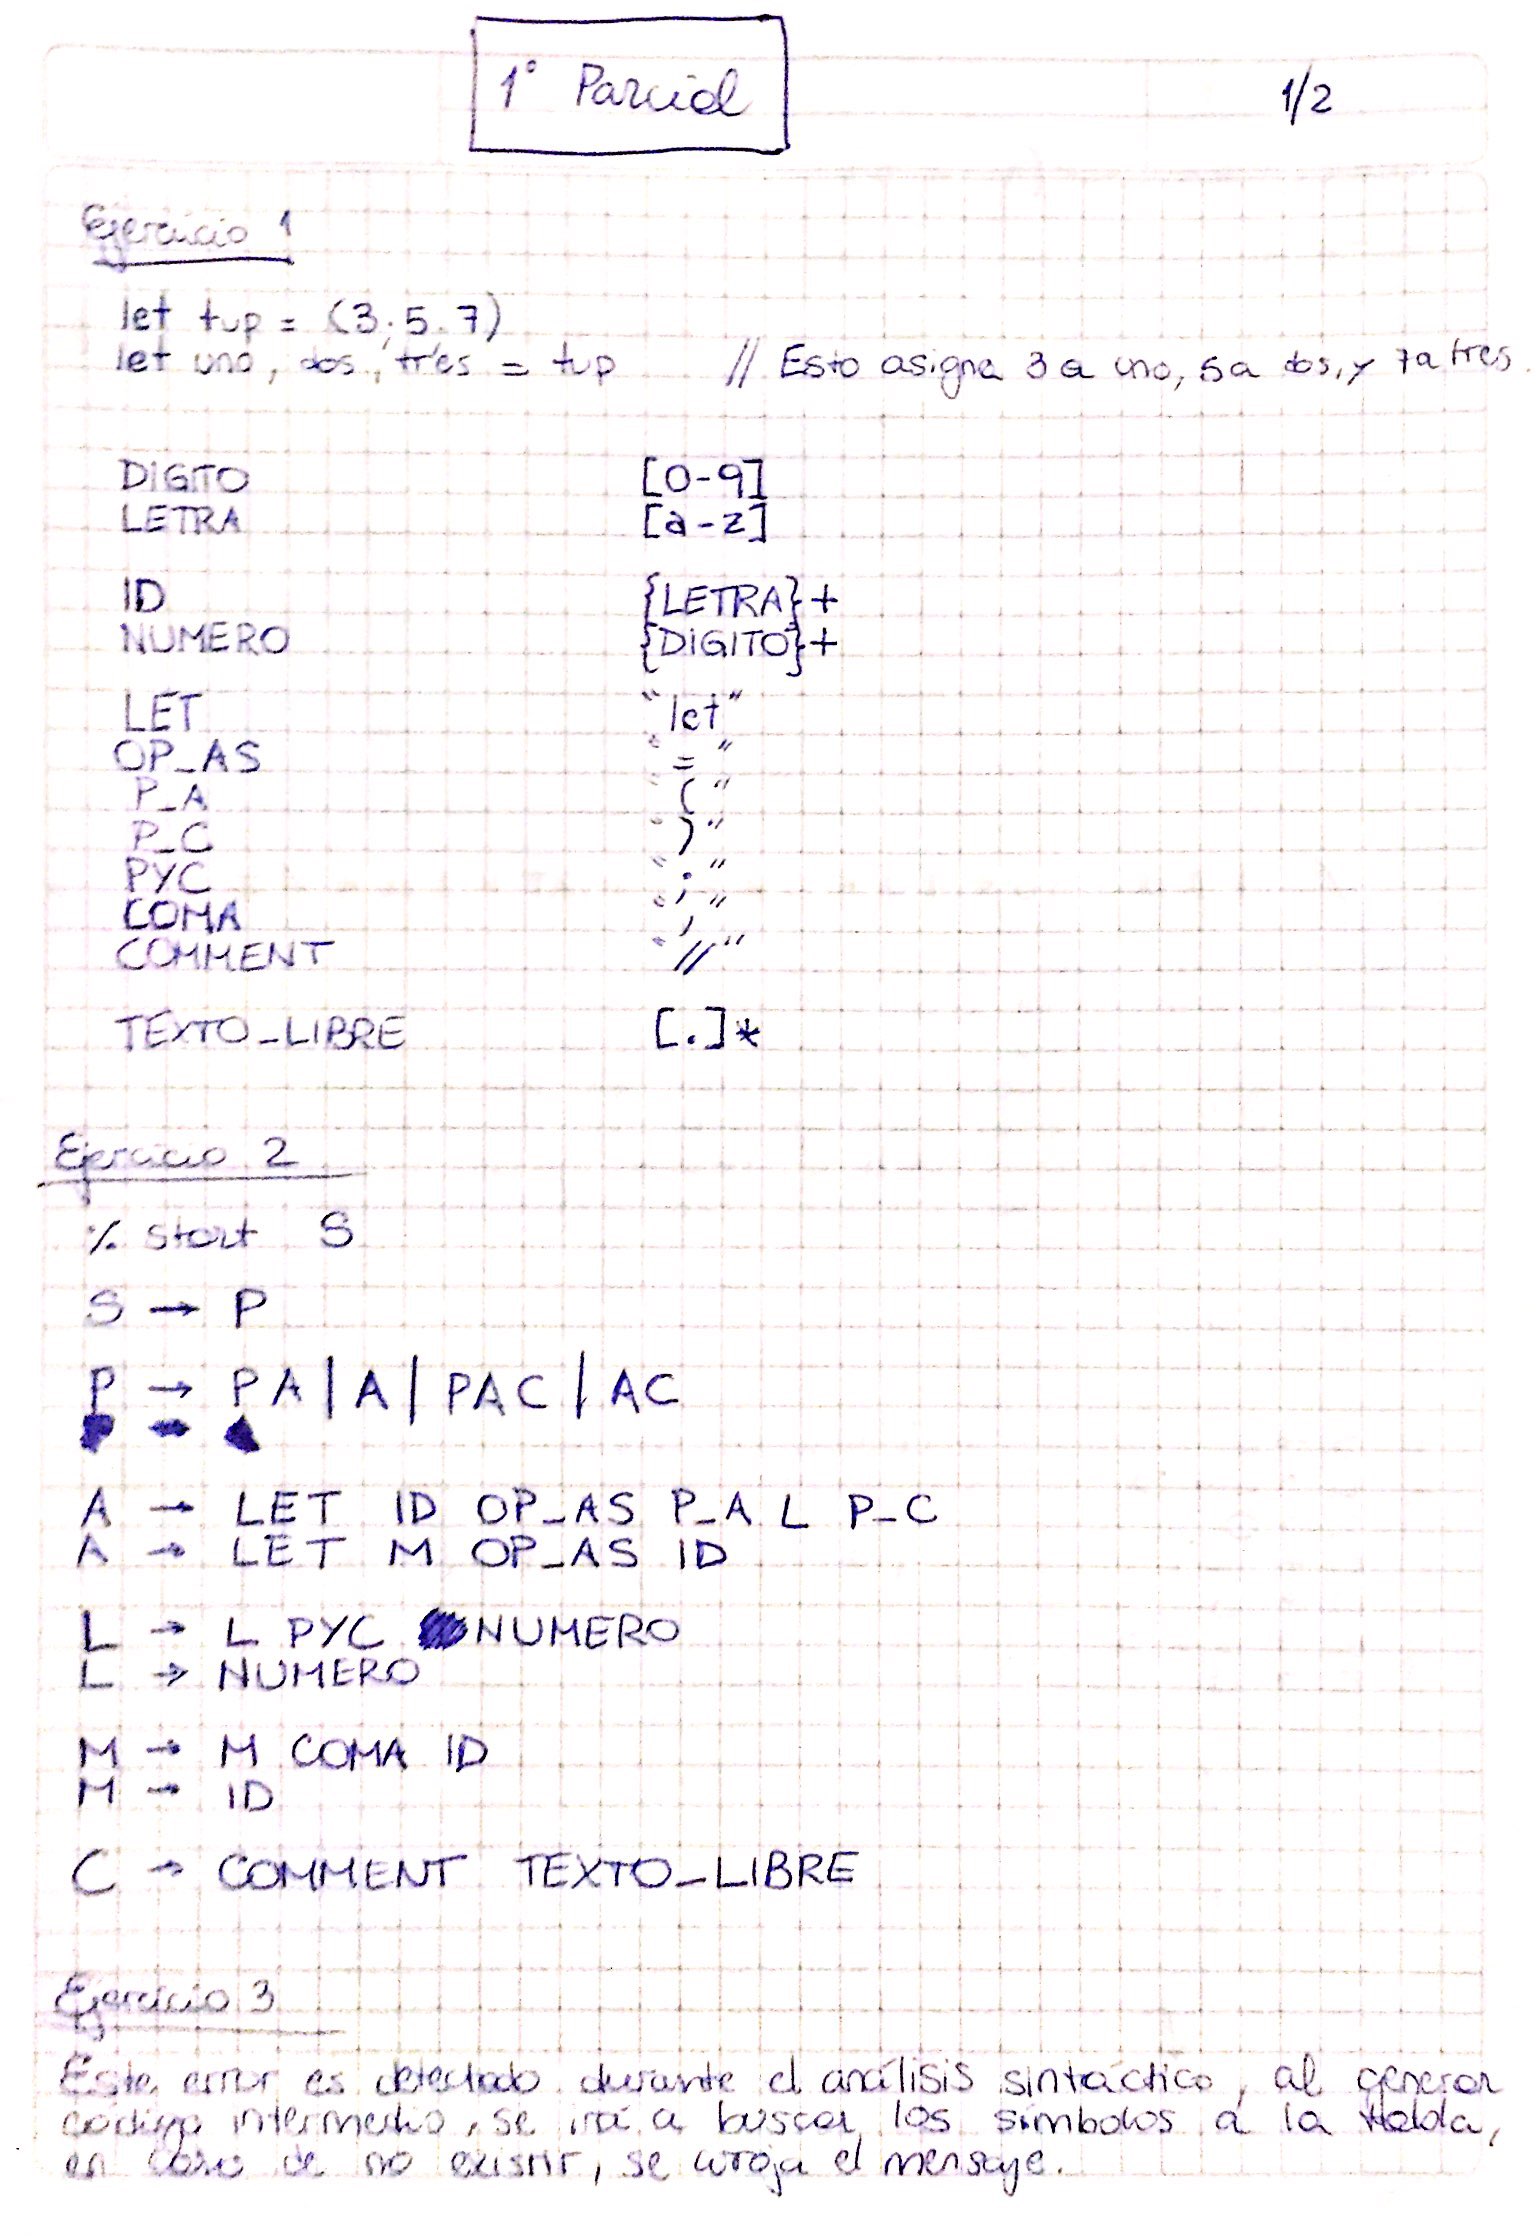 1° Parcial
1/2
Ejercicio 1
let tup = (3; 5. 7)
let uno, dos, tres = tup // Esto asigna 3 a uno, 5 a dos, y 7 a tres.
DIGITO [0-9]
LETRA [a-z]
ID {LETRA}+
NUMERO {DIGITO}+
LET "let"
OP_AS "="
P_A "("
P_C ")"
PYC ";"
COMA ","
COMMENT "//"
TEXTO_LIBRE [.]*
Ejercicio 2
% start S
S → P
P → P A | A | PAC | AC
A → LET ID OP_AS P_A L P_C
A → LET M OP_AS ID
L → L PYC NUMERO
L → NUMERO
M → M COMA ID
M → ID
C → COMMENT TEXTO_LIBRE
Ejercicio 3
Este error es detectado durante el análisis sintáctico, al generar
código intermedio, se irá a buscar los símbolos a la tabla,
en caso de no existir, se arroja el mensaje.